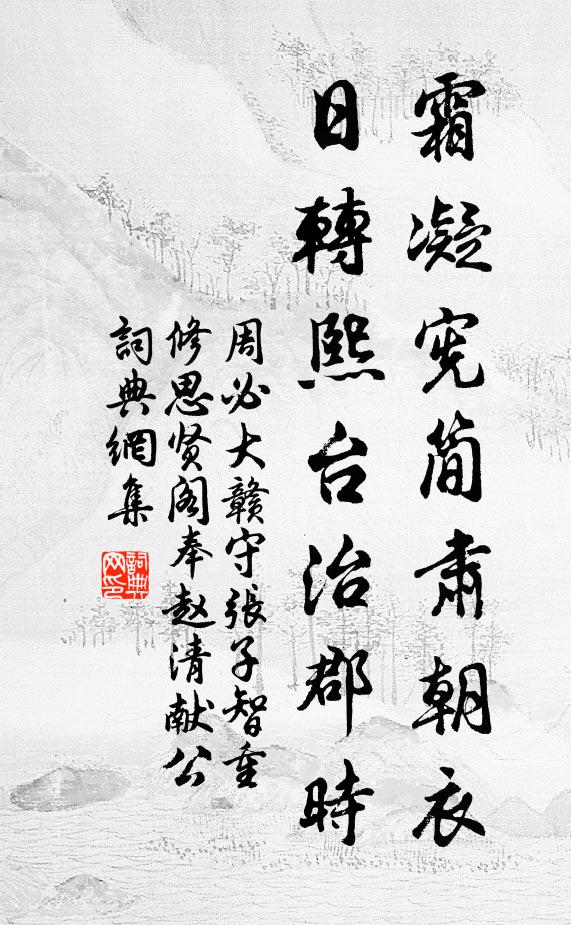 霜凝宪简肃朝衣
日轉熙台治郡時
周必大赣守張子智重
修思贤阁奉赵清献公
詞典網集
詞典
网印